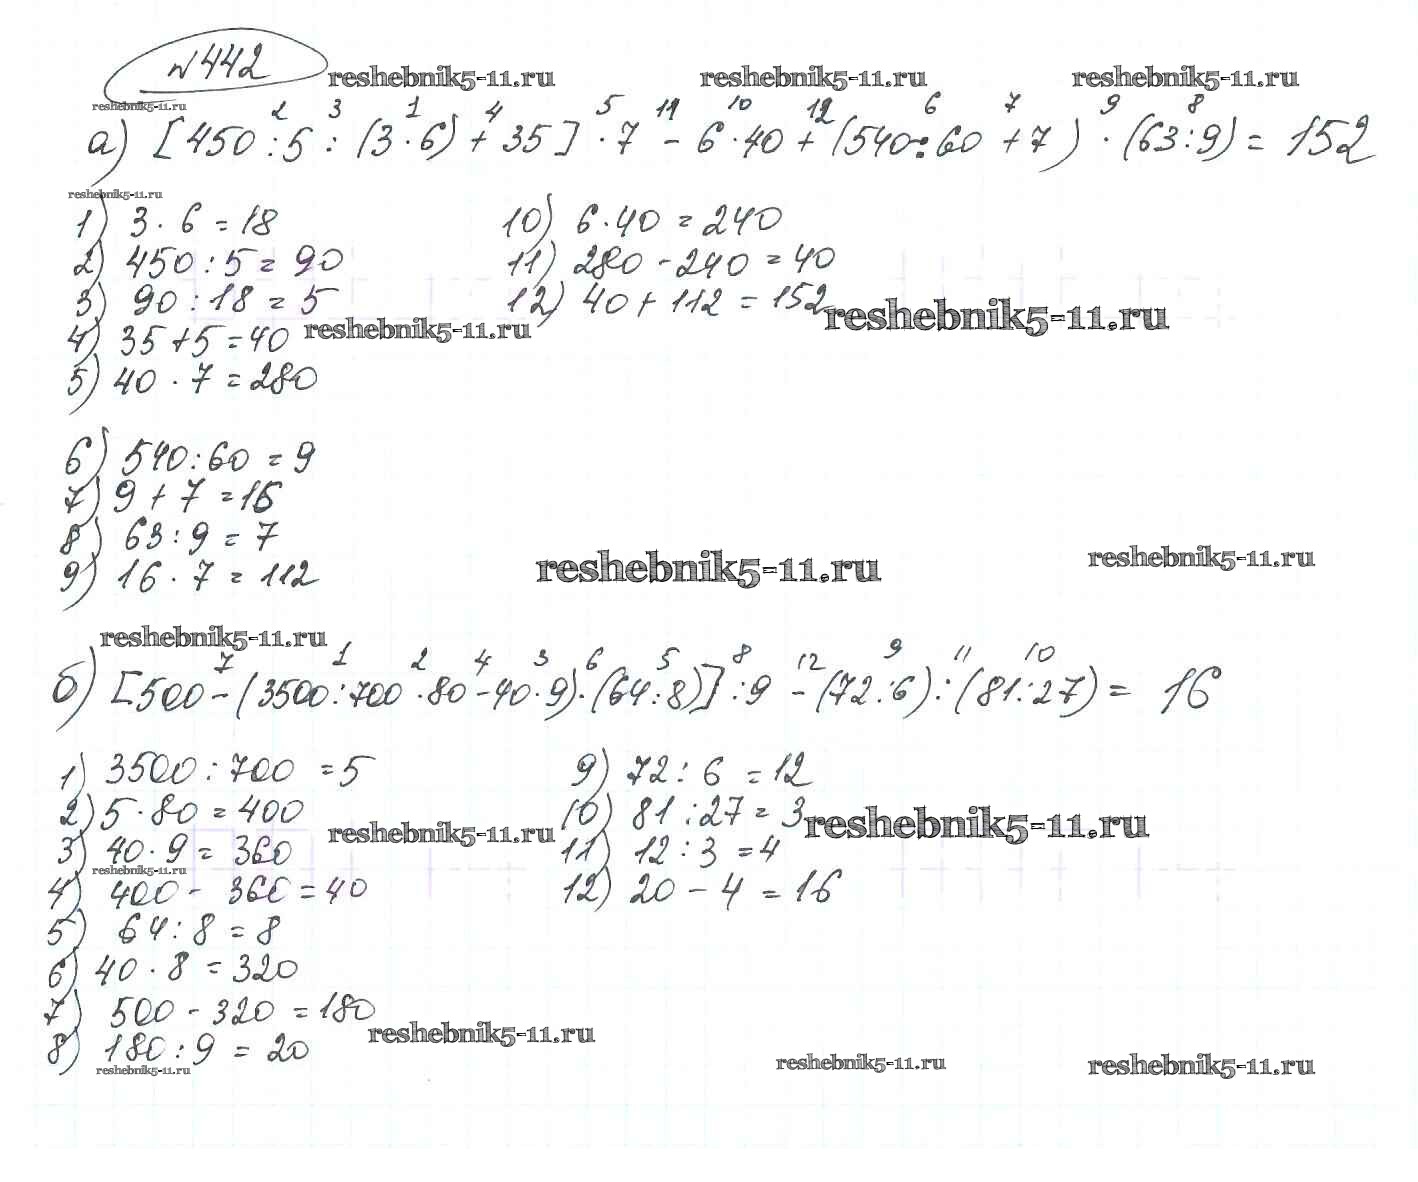 №442
reshebnik5-11.ru reshebnik5-11.ru reshebnik5-11.ru
reshebnik5-11.ru
2 3 1 4 5 11 10 12 6 7 9 8
а) [450 : 5 : (3 · 6) + 35] · 7 - 6 · 40 + (540 : 60 + 7) · (63 : 9) = 152
reshebnik5-11.ru
1) 3 · 6 = 18
2) 450 : 5 = 90
3) 90 : 18 = 5
reshebnik5-11.ru
4) 35 + 5 = 40
5) 40 · 7 = 280
6) 540 : 60 = 9
7) 9 + 7 = 16
8) 63 : 9 = 7
9) 16 · 7 = 112
10) 6 · 40 = 240
11) 280 - 240 = 40
12) 40 + 112 = 152
reshebnik5-11.ru
reshebnik5-11.ru reshebnik5-11.ru
reshebnik5-11.ru
7 1 2 4 3 6 5 8 12 9 11 10
б) [500 - (3500 : 700 · 80 - 40 · 9) · (64 : 8)] : 9 - (72 : 6) : (81 : 27) = 16
1) 3500 : 700 = 5
2) 5 · 80 = 400
reshebnik5-11.ru
3) 40 · 9 = 360
reshebnik5-11.ru
4) 400 - 360 = 40
5) 64 : 8 = 8
6) 40 · 8 = 320
7) 500 - 320 = 180
8) 180 : 9 = 20
9) 72 : 6 = 12
10) 81 : 27 = 3
reshebnik5-11.ru
11) 12 : 3 = 4
12) 20 - 4 = 16
reshebnik5-11.ru
reshebnik5-11.ru reshebnik5-11.ru reshebnik5-11.ru